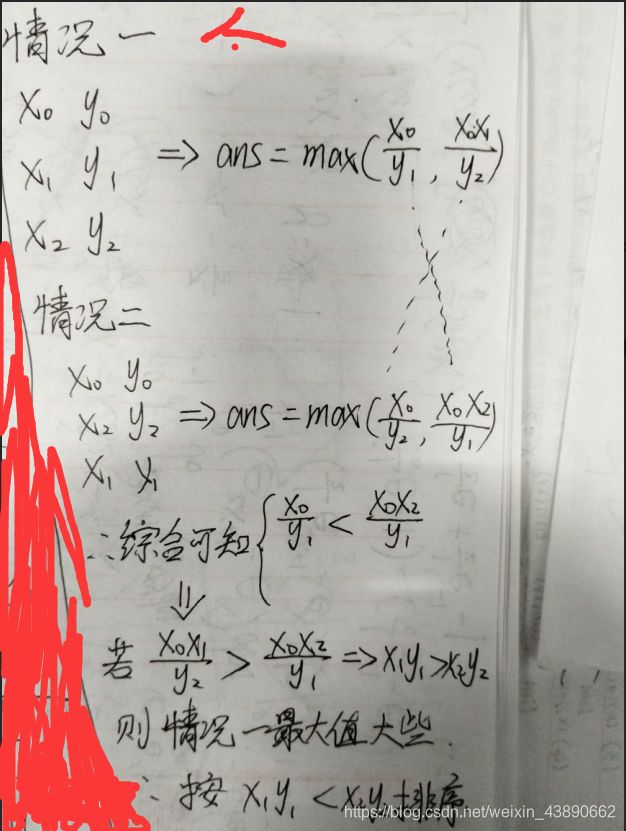 情况一
x₀ y₀
x₁ y₁ => ans = max(x₀/y₁, x₀x₁/y₂)
x₂ y₂
情况二
x₀ y₀
x₂ y₂ => ans = max(x₀/y₂, x₀x₂/y₁)
x₁ y₁
∴综合可知 { x₀/y₁ < x₀x₂/y₁
⇓
若 x₀x₁/y₂ > x₀x₂/y₁ => x₁y₁ > x₂y₂
则情况一最大值大些.
∴ 按 x₁y₁ < x₂y₂ 排序
https://blog.csdn.net/weixin_43890662